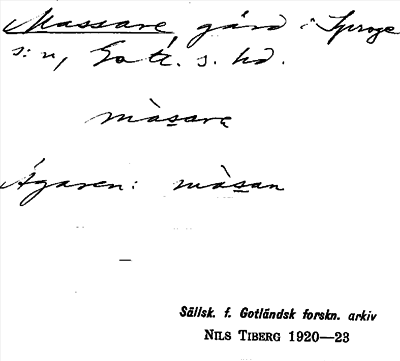 Massare, gård i Sproge
s:n, Gotl. s. hd.
màsarę
Ägaren: màsan
Sällsk. f. Gotländsk forskn. arkiv
NILS TIBERG 1920—23